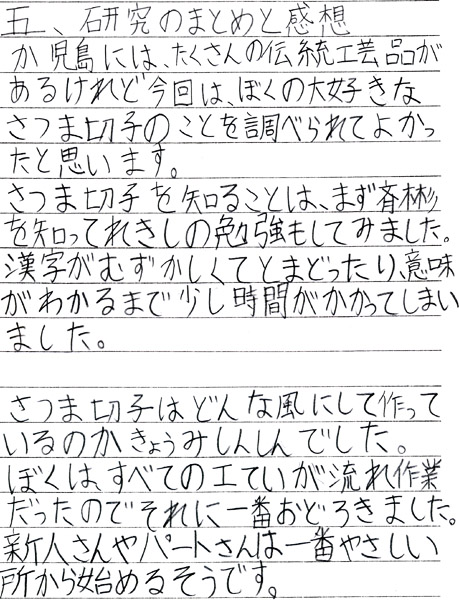 五、研究のまとめと感想
か児島には、たくさんの伝統工芸品が
あるけれど今回は、ぼくの大好きな
さつま切子のことを調べられてよかっ
たと思います。
さつま切子を知ることは、まず斉彬
を知ってれきしの勉強もしてみました。
漢字がむずかしくてとまどったり、意味
がわかるまで少し時間がかかってしまい
ました。
さつま切子はどんな風にして作って
いるのかきょうみしんしんでした。
ぼくはすべての工ていが流れ作業
だったのでそれに一番おどろきました。
新人さんやパートさんは一番やさしい
所から始めるそうです。